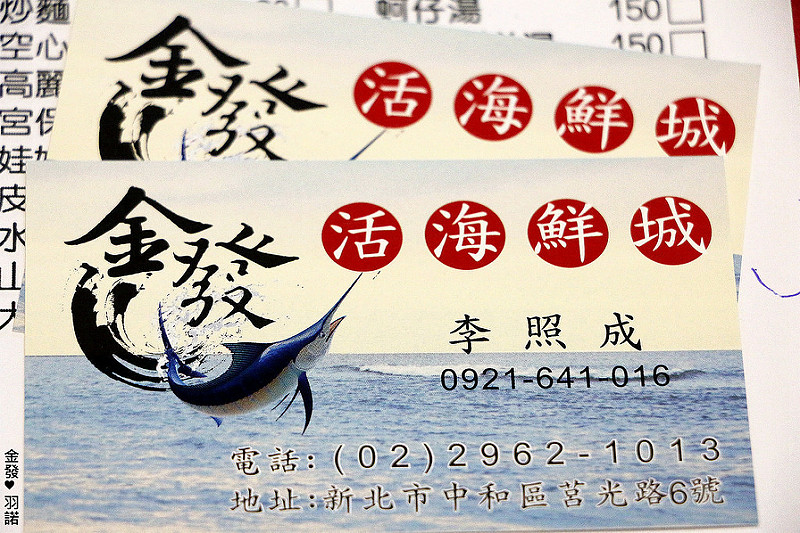 炒麵
蚵仔湯 150
空心
湯 150
高麗
宮保
娃
皮
水
山
金發 活海鮮城
金發 活海鮮城
李照成
0921-641-016
電話:(02)2962-1013
地址:新北市中和區莒光路6號
金發♥羽諾